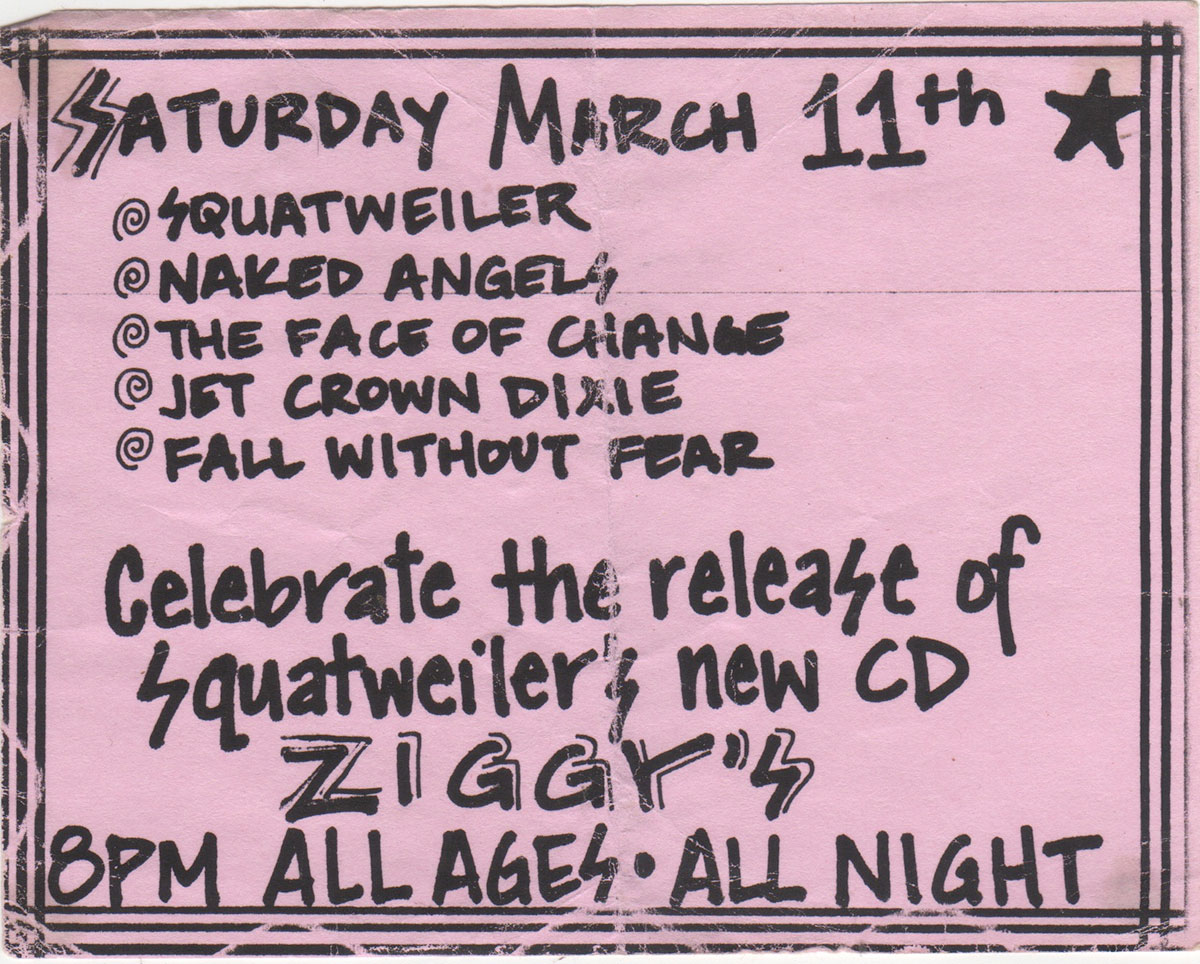 SATURDAY MARCH 11th
SQUATWEILER
NAKED ANGELS
THE FACE OF CHANGE
JET CROWN DIXIE
FALL WITHOUT FEAR
Celebrate the release of
squatweiler's new CD
ZIGGY'S
8PM ALL AGES • ALL NIGHT